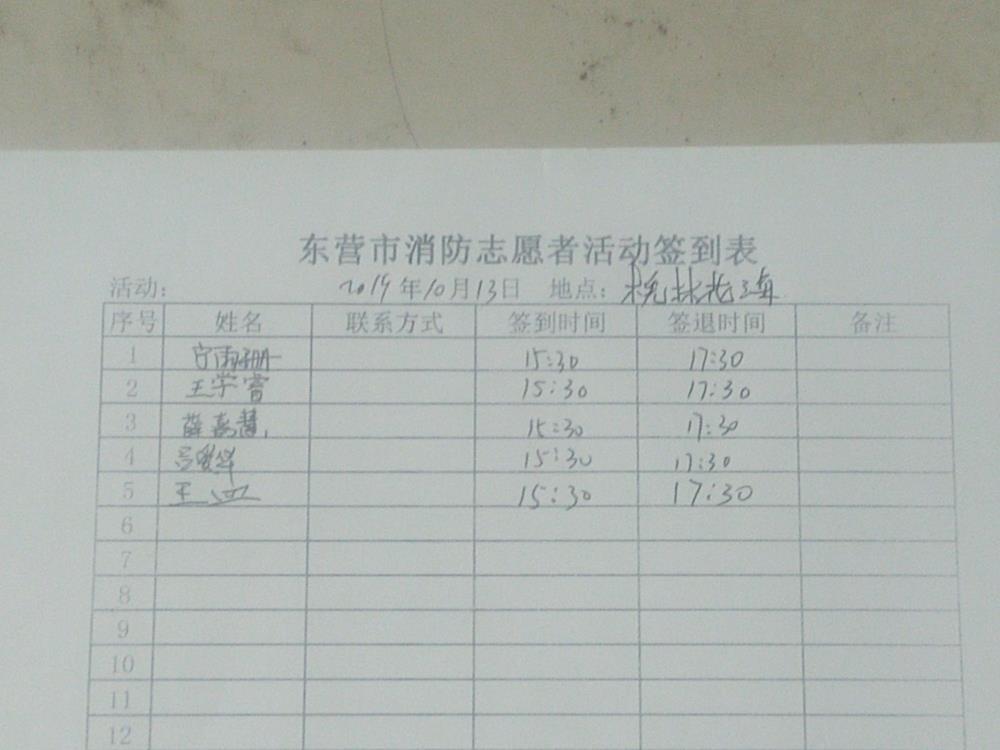 东营市消防志愿者活动签到表
活动： 2019年10月13日 地点：
序号 姓名 联系方式 签到时间 签退时间 备注
1 宁雨珊 15:30 17:30
2 王学睿 15:30 17:30
3 薛 慧 15:30 17:30
4 吕 15:30 17:30
5 王 15:30 17:30
6
7
8
9
10
11
12